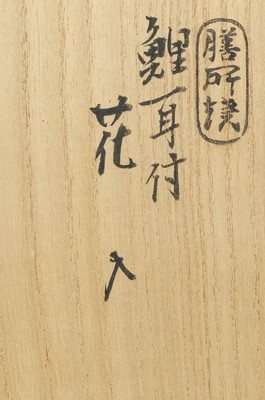 膳所焼
鯉耳付
花入